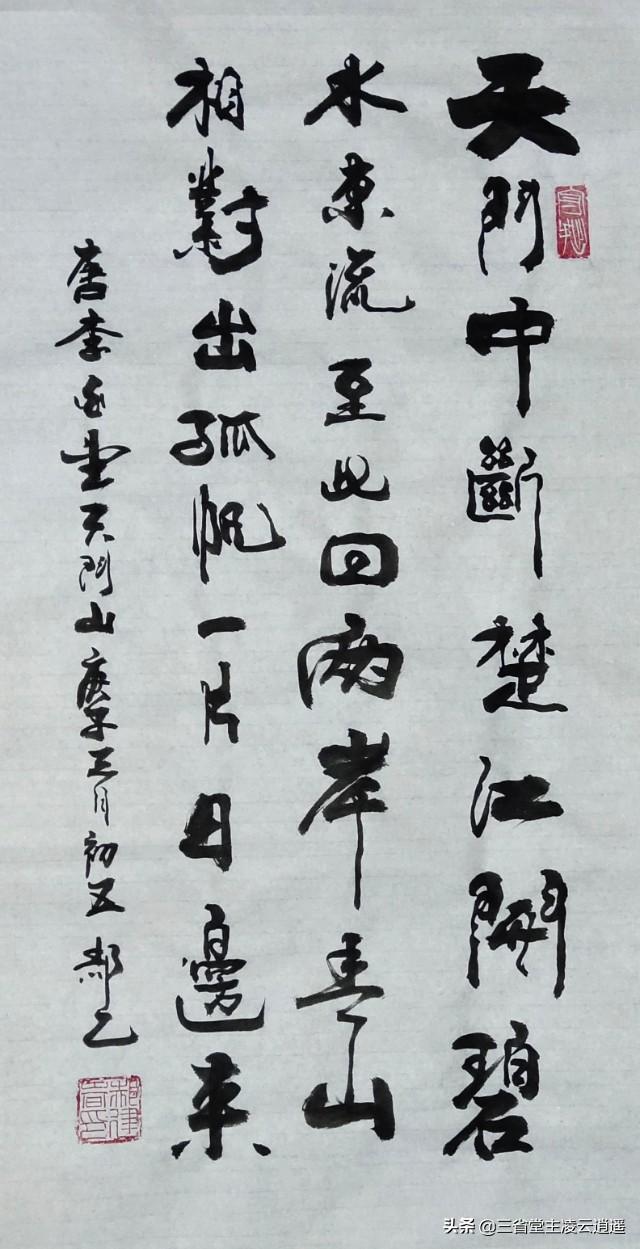 天門中斷楚江開碧
水東流至此回兩岸青山
相對出孤帆一片日邊來
唐李白望天門山庚子三月初五郝乙
头条 @三省堂主凌云逍遥